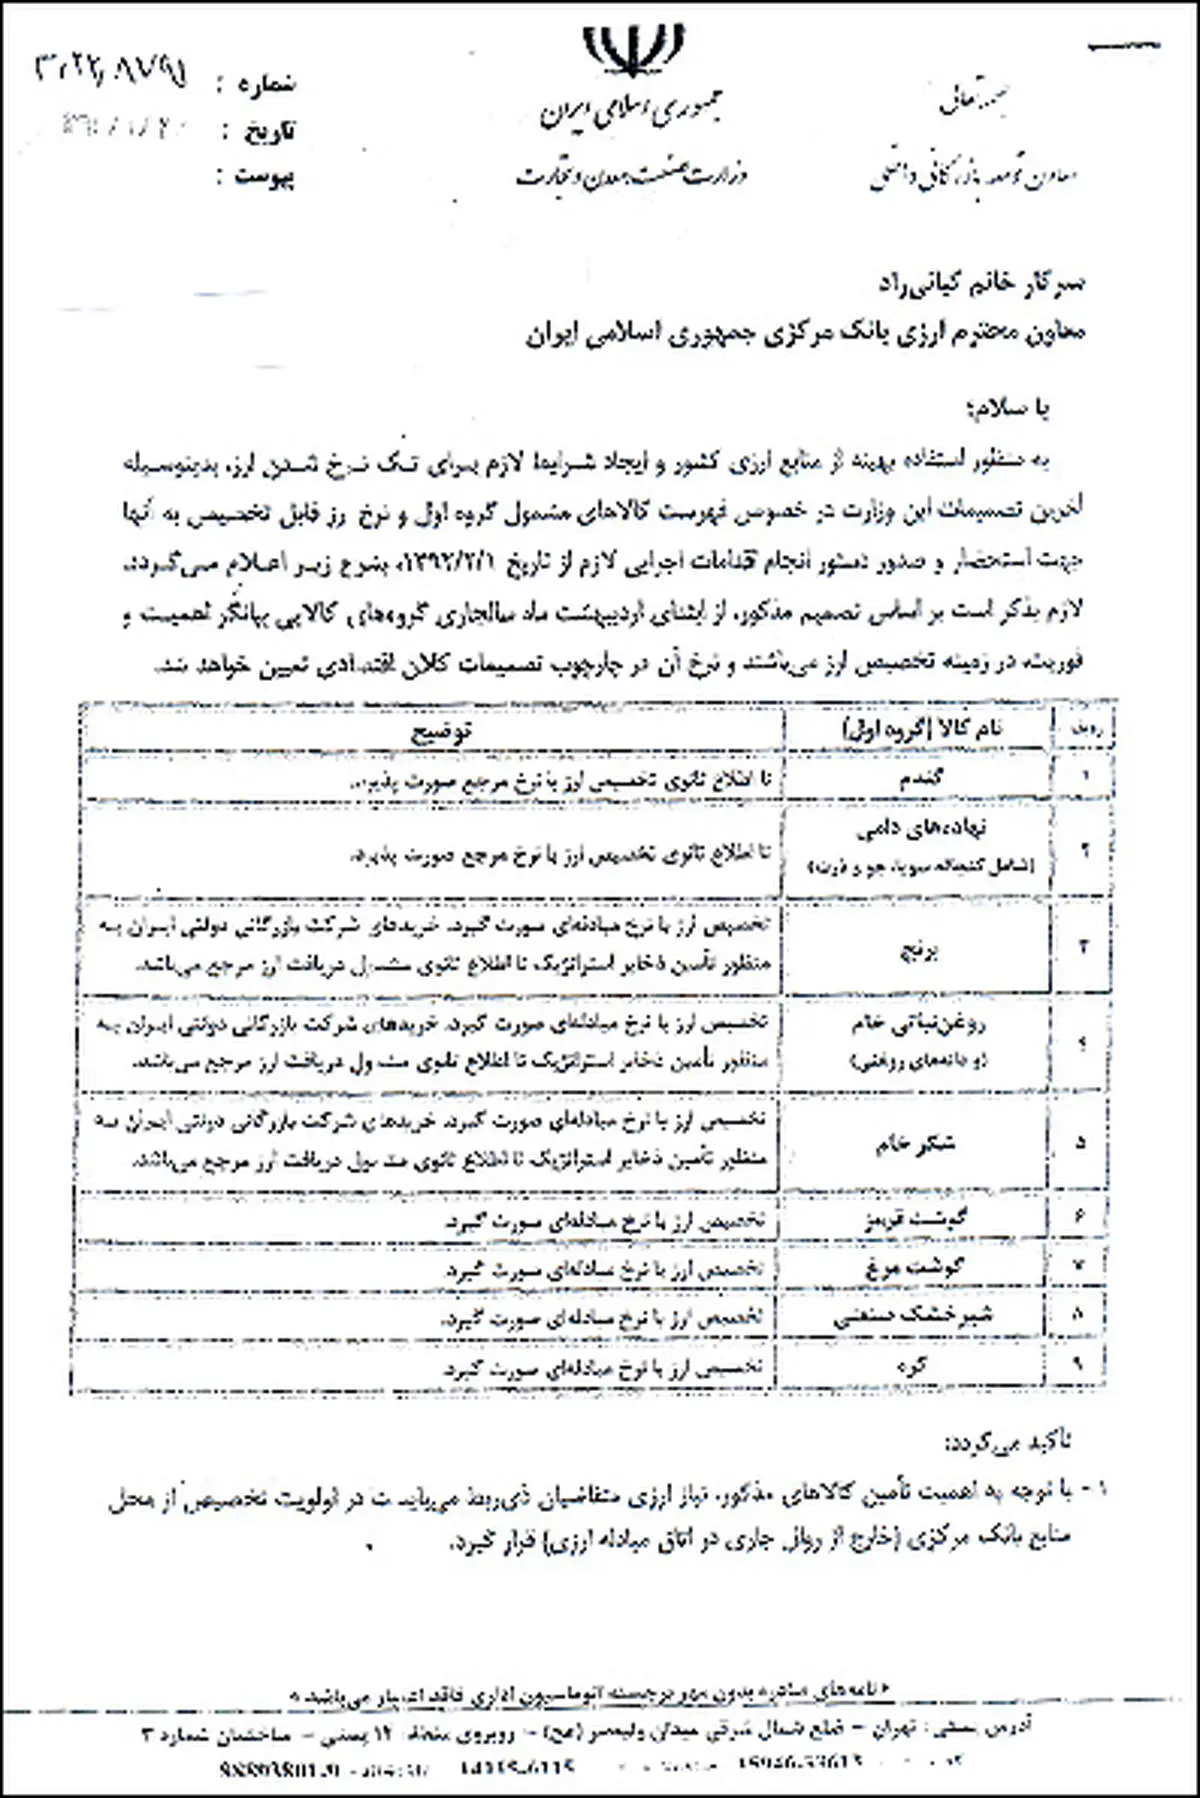 شماره :
تاریخ :
پیوست :
جمهوری اسلامی ایران
وزارت صنعت، معدن و تجارت
بسمه تعالی
معاون توسعه بازرگانی داخلی
سرکار خانم کیانی‌راد
معاون محترم ارزی بانک مرکزی جمهوری اسلامی ایران
با سلام؛
به منظور استفاده بهینه از منابع ارزی کشور و ایجاد شرایط لازم برای تک نرخ شدن ارز، بدینوسیله
آخرین تصمیمات این وزارت در خصوص فهرست کالاهای مشمول گروه اول و نرخ ارز قابل تخصیص به آنها
جهت استحضار و صدور دستور انجام اقدامات اجرایی لازم از تاریخ ۱۳۹۲/۲/۱، بشرح زیر اعلام می‌گردد.
لازم بذکر است بر اساس تصمیم مذکور، از ابتدای اردیبهشت ماه سالجاری گروه‌های کالایی بیانگر اهمیت و
فوریت در زمینه تخصیص ارز می‌باشند و نرخ آن در چارچوب تصمیمات کلان اقتصادی تعیین خواهد شد.
ردیف نام کالا (گروه اول) توضیح
۱ گندم تا اطلاع ثانوی تخصیص ارز با نرخ مرجع صورت پذیرد.
۲ نهاده‌های دامی
(شامل کنجاله سویا، جو و ذرت) تا اطلاع ثانوی تخصیص ارز با نرخ مرجع صورت پذیرد.
۳ برنج تخصیص ارز با نرخ مبادله‌ای صورت گیرد. خریدهای شرکت بازرگانی دولتی ایران به
منظور تأمین ذخایر استراتژیک تا اطلاع ثانوی مشمول دریافت ارز مرجع می‌باشد.
۴ روغن‌نباتی خام
(و دانه‌های روغنی) تخصیص ارز با نرخ مبادله‌ای صورت گیرد. خریدهای شرکت بازرگانی دولتی ایران به
منظور تأمین ذخایر استراتژیک تا اطلاع ثانوی مشمول دریافت ارز مرجع می‌باشد.
۵ شکر خام تخصیص ارز با نرخ مبادله‌ای صورت گیرد. خریدهای شرکت بازرگانی دولتی ایران به
منظور تأمین ذخایر استراتژیک تا اطلاع ثانوی مشمول دریافت ارز مرجع می‌باشد.
۶ گوشت قرمز تخصیص ارز با نرخ مبادله‌ای صورت گیرد.
۷ گوشت مرغ تخصیص ارز با نرخ مبادله‌ای صورت گیرد.
۸ شیرخشک صنعتی تخصیص ارز با نرخ مبادله‌ای صورت گیرد.
۹ کره تخصیص ارز با نرخ مبادله‌ای صورت گیرد.
تأکید می‌گردد:
۱- با توجه به اهمیت تأمین کالاهای مذکور، نیاز ارزی متقاضیان ذی‌ربط می‌بایست در اولویت تخصیص از محل
منابع بانک مرکزی (خارج از روال جاری در اتاق مبادله ارزی) قرار گیرد.
« نامه‌های صادره بدون مهر برجسته اتوماسیون اداری فاقد اعتبار می‌باشد »
آدرس پستی : تهران – ضلع شمال شرقی میدان ولیعصر (عج) – روبروی منطقه ۱۲ پستی – ساختمان شماره ۳